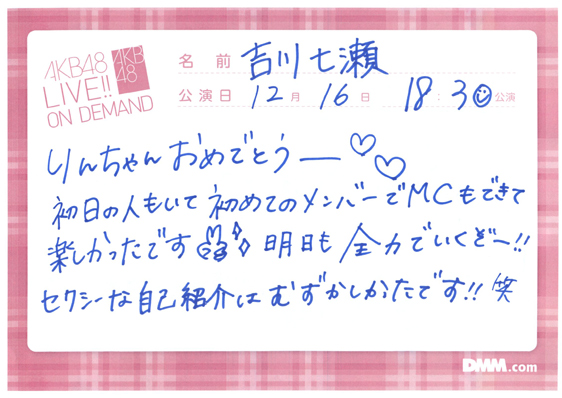 AKB48
LIVE!!
ON DEMAND
AKB
48
名前 吉川七瀬
公演日 12月16日 18:30公演
りんちゃんおめでとうー♡♡
初日の人もいて初めてのメンバーでMCもできて
楽しかったです 明日も全力でいくぞー!!
セクシーな自己紹介はむずかしかったです!! 笑
DMM.com